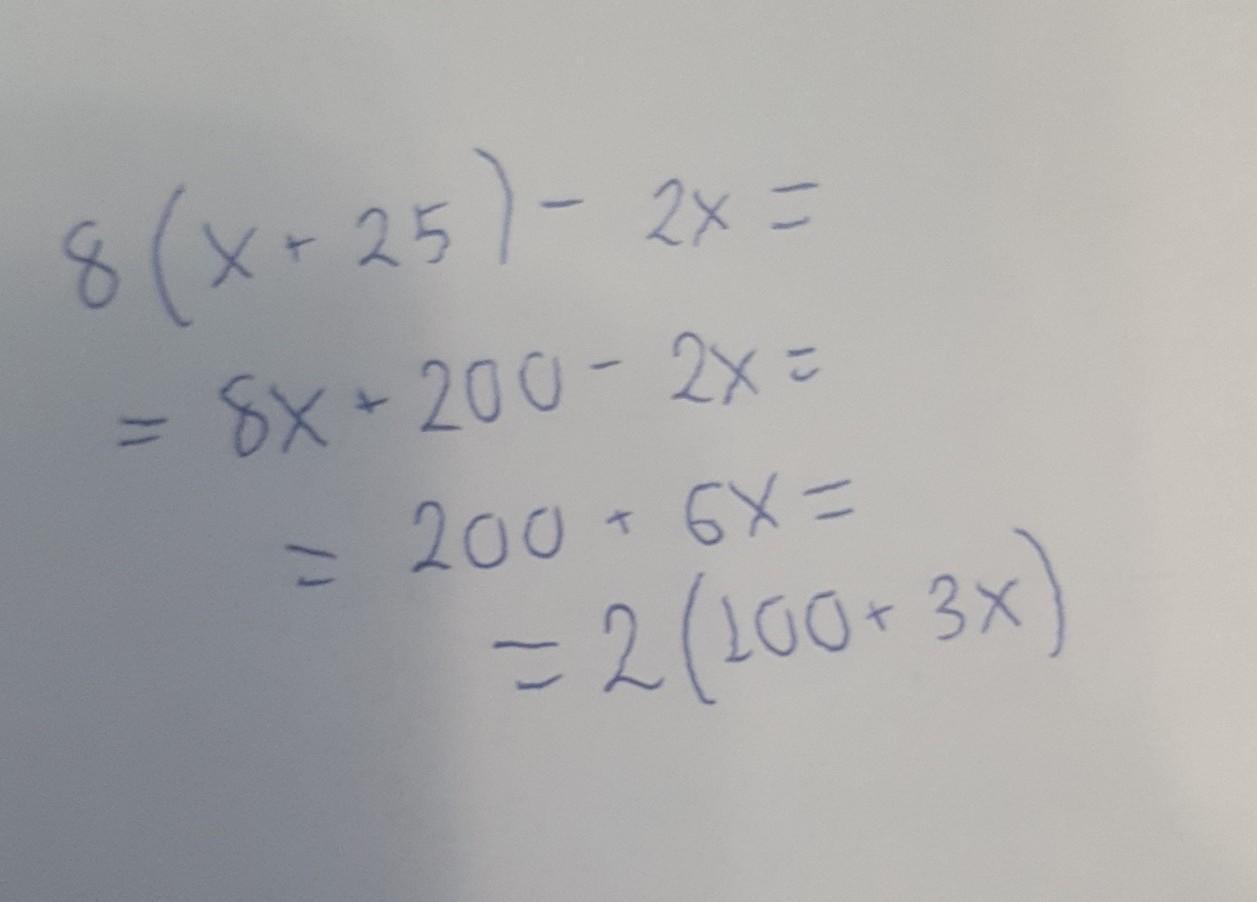 8(x + 25) - 2x =
= 8x + 200 - 2x =
= 200 + 6x =
= 2(100 + 3x)